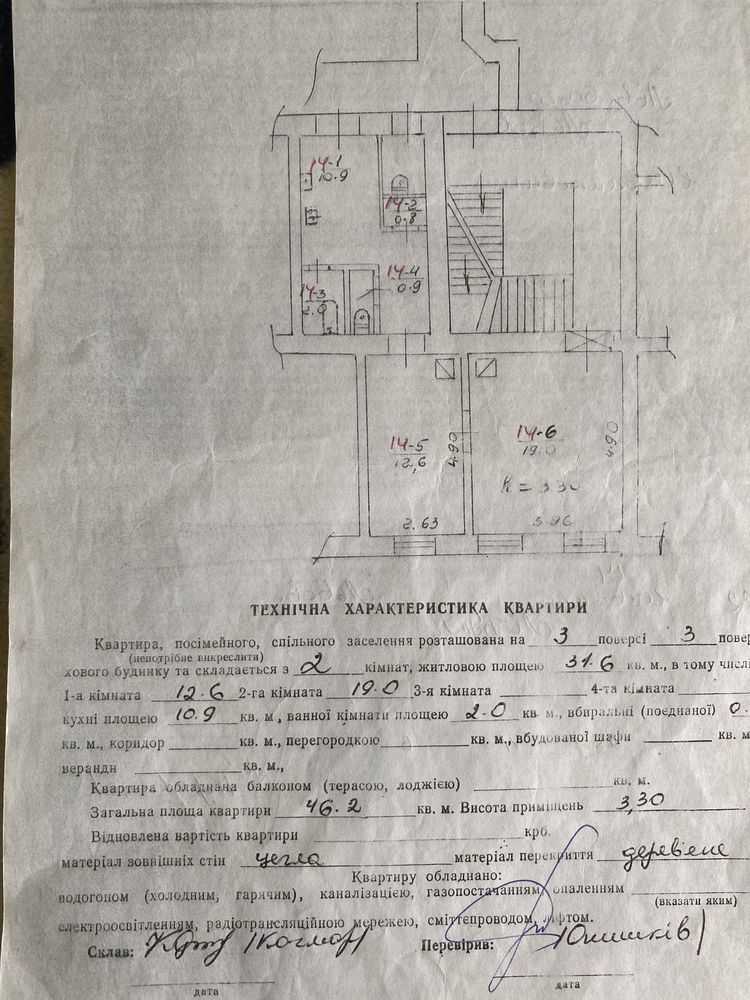 14-1
10.9
14-2
0.8
14-4
0.9
14-3
2.0
14-5
12,6
4.90
14-6
19.0
4.90
h = 3.30
2.63
3.96
ТЕХНІЧНА ХАРАКТЕРИСТИКА КВАРТИРИ
Квартира, посімейного, спільного заселення розташована на 3 поверсі 3 повер
(непотрібне викреслити)
хового будинку та складається з 2 кімнат, житловою площею 31.6 кв. м., в тому числі
1-а кімната 12.6 2-га кімната 19.0 3-я кімната 4-та кімната
кухні площею 10.9 кв. м, ванної кімнати площею 2.0 кв. м, вбиральні (поєднаної) 0.
кв. м., коридор кв. м., перегородкою кв. м., вбудованої шафи кв. м
веранди кв. м.,
Квартира обладнана балконом (терасою, лоджією) кв. м.
Загальна площа квартири 46.2 кв. м. Висота приміщень 3,30
Відновлена вартість квартири крб.
матеріал зовнішніх стін цегла матеріал перекриття дерев'яне
Квартиру обладнано:
водогоном (холодним, гарячим), каналізацією, газопостачанням, опаленням
(вказати яким)
електроосвітленням, радіотрансляційною мережею, сміттєпроводом, ліфтом.
Склав: Перевірив:
дата дата